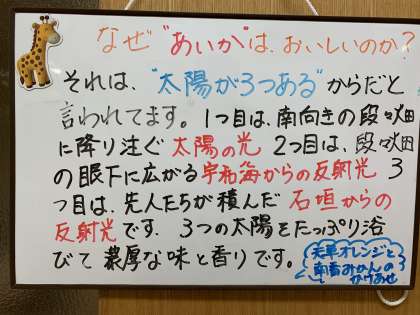 なぜ"あいか"は、おいしいのか?
それは、"太陽が3つある"からだと
言われてます。1つ目は、南向きの段々畑
に降り注ぐ太陽の光 2つ目は、段々畑
の眼下に広がる宇和海からの反射光 3
つ目は、先人たちが積んだ石垣からの
反射光です。3つの太陽をたっぷり浴
びて濃厚な味と香りです。
天草オレンジと
南香みかんの
かけあわせ